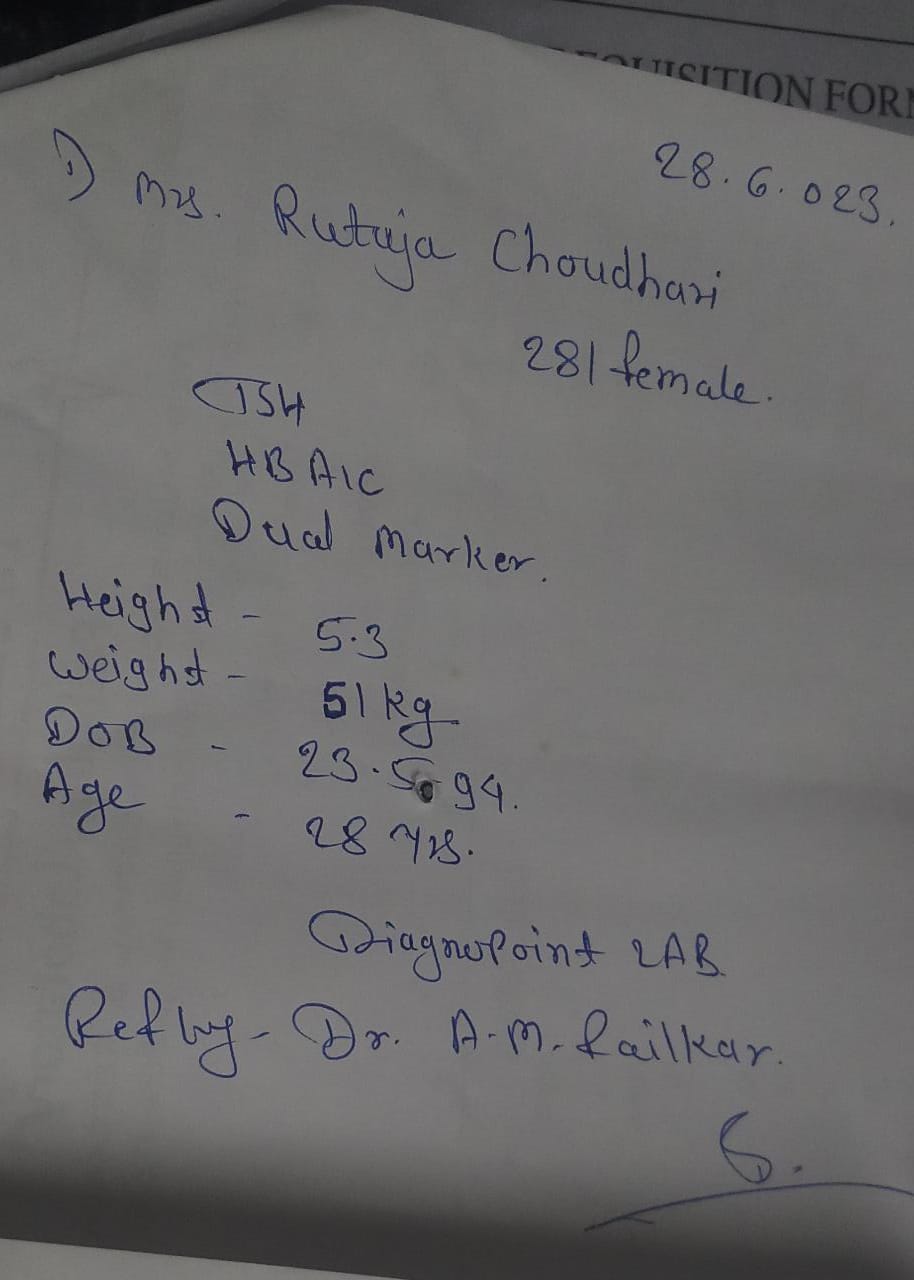 QUISITION FOR
28.6.023.
1) Mrs. Rutuja Choudhari
28/ female.
TSH
HBA1C
Dual Marker.
Height - 5.3
Weight - 51 kg
DOB - 23.5.94.
Age - 28 yrs.
Diagnopoint LAB
Ref by - Dr. A.M. Railkar.